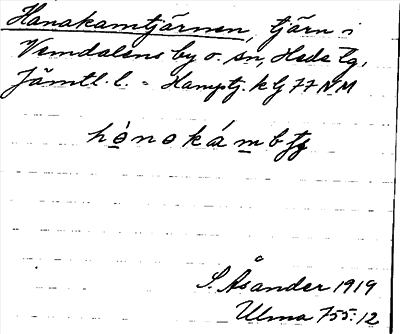 Hanakamtjärnen, tjärn i
Vemdalens by o. sn, Heds tg,
Jämtl. l. = Hamptj. k G 77 NM
hònokámbtj
S. Åsander 1919
Ulma 755:12